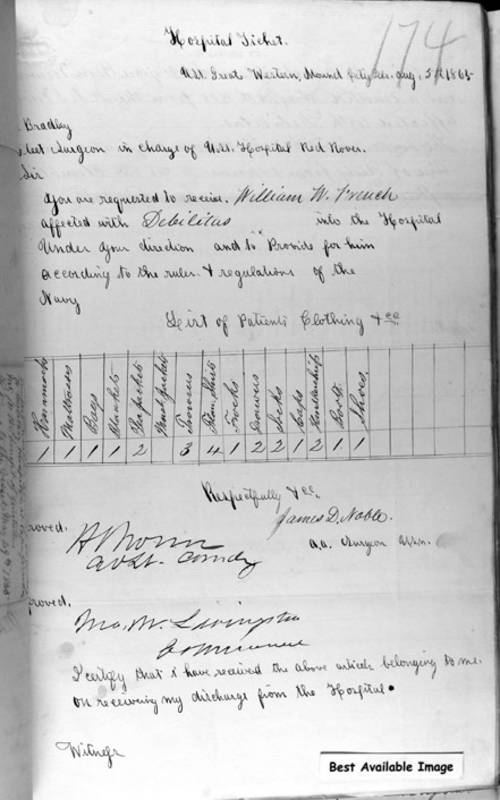 174
Hospital Ticket.
U.S.S. Great Western, Mound City Ills. Aug. 5th 1865
Bradley
leet Surgeon in charge of U.S. Hospital Red Rover.
Sir
You are requested to receive William W. French
affected with Debilitas into the Hospital
Under your direction and to Provide for him
according to the rules & regulations of the
Navy
List of Patients Clothing &cc
Hammocks Mattresses Bags Blankets Pea Jackets Trowsers Flan. Shirts Frocks Drawers Socks Caps Handkerchiefs Boots Shoes
1 1 1 1 2 3 4 1 2 2 1 2 1 1
Respectfully &cc.
James D. Noble.
a.a. Surgeon U.S.N.
roved.
proved.
Jno. W. Livingston
I certify that I have received the above articles belonging to me.
on receiving my discharge from the Hospital.
Witness
Best Available Image